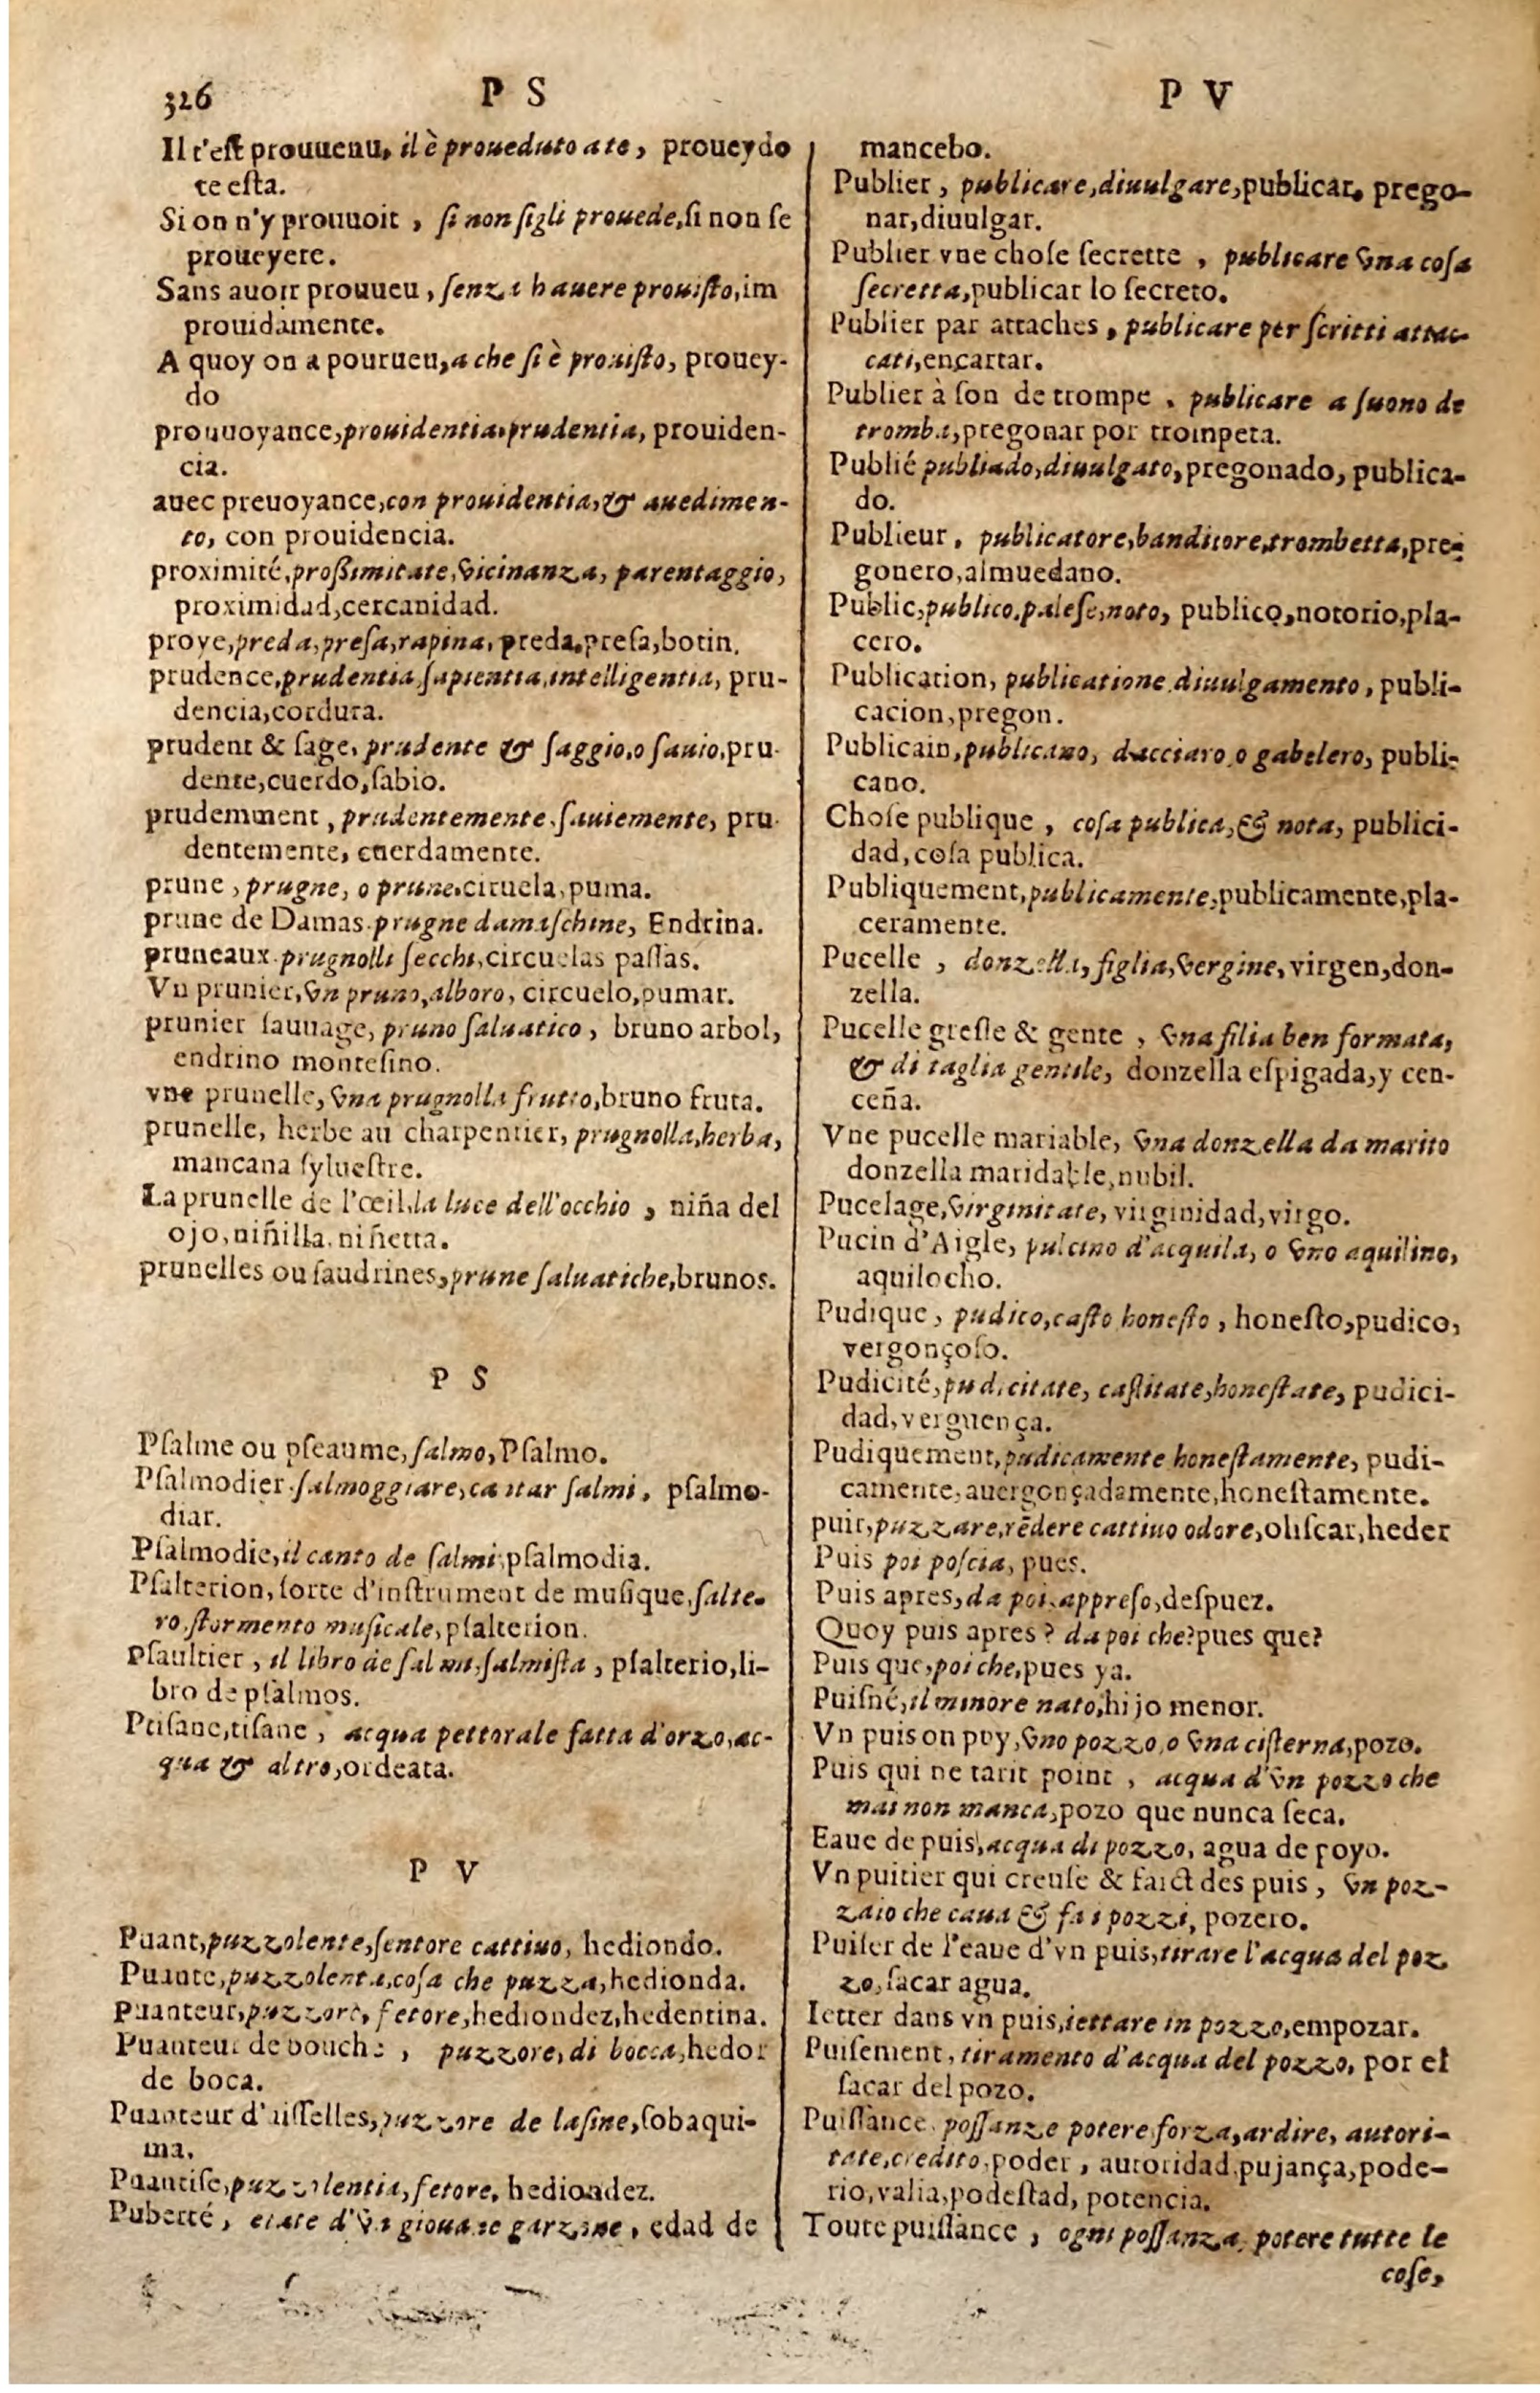 326
P S
P V
Il t'eſt prouuenu, il è proueduto a te, proueydo
te eſta.
Si on n'y prouuoit, ſi non ſigli prouede, ſi non ſe
proueyere.
Sans auoir prouueu, ſenza hauere prouiſto, im
prouidamente.
A quoy on a pourueu, a che ſi è prouiſto, prouey-
do
prouuoyance, prouidentia, prudentia, prouiden-
cia.
auec preuoyance, con prouidentia, & auedimen-
to, con prouidencia.
proximité, proßimitate, vicinanza, parentaggio,
proximidad, cercanidad.
proye, preda, preſa, rapina, preda, preſa, botin.
prudence, prudentia, ſapientia, intelligentia, pru-
dencia, cordura.
prudent & ſage, prudente & ſaggio, o ſauio, pru-
dente, cuerdo, ſabio.
prudemment, prudentemente, ſauiemente, pru-
dentemente, cuerdamente.
prune, prugne, o prune, ciruela, puma.
prune de Damas. prugne damaſchine, Endrina.
pruneaux. prugnolli ſecchi, circuelas paſſas.
Vn prunier, vn pruno, alboro, circuelo, pumar.
prunier ſauuage, pruno ſaluatico, bruno arbol,
endrino monteſino.
vne prunelle, vna prugnolla frutto, bruno fruta.
prunelle, herbe au charpentier, prugnolla, herba,
mancana ſylueſtre.
La prunelle de l'œil, la luce dell'occhio, niña del
ojo, niñilla, niñetta.
prunelles ou ſaudrines, prune ſaluatiche, brunos.
P S
Pſalme ou pſeaume, ſalmo, Pſalmo.
Pſalmodier. ſalmoggiare, cantar ſalmi, pſalmo-
diar.
Pſalmodie, il canto de ſalmi, pſalmodia.
Pſalterion, ſorte d'inſtrument de muſique, ſalte-
ro, ſtormento muſicale, pſalterion.
Pſaultier, il libro de ſalmi, ſalmiſta, pſalterio, li-
bro de pſalmos.
Ptiſane, tiſane, acqua pettorale fatta d'orzo, ac-
qua & altro, ordeata.
P V
Puant, puzzolente, ſentore cattiuo, hediondo.
Puante, puzzolenta, coſa che puzza, hedionda.
Puanteur, puzzore, fetore, hediondez, hedentina.
Puanteur de bouche, puzzore, di bocca, hedor
de boca.
Puanteur d'aiſſelles, puzzore de laſine, ſobaqui-
ma.
Puantiſe, puzzolentia, fetore, hediondez.
Puberté, etate d'vn giouane garzone, edad de
mancebo.
Publier, publicare, diuulgare, publicar, prego-
nar, diuulgar.
Publier vne choſe ſecrette, publicare vna coſa
ſecretta, publicar lo ſecreto.
Publier par attaches, publicare per ſcritti attac-
cati, encartar.
Publier à ſon de trompe, publicare a ſuono de
tromba, pregonar por trompeta.
Publié publiado, diuulgato, pregonado, publica-
do.
Publieur, publicatore, banditore, trombetta, pre-
gonero, almuedano.
Public, publico, paleſe, noto, publico, notorio, pla-
cero.
Publication, publicatione, diuulgamento, publi-
cacion, pregon.
Publicain, publicano, dacciaro o gabelero, publi-
cano.
Choſe publique, coſa publica, & nota, publici-
dad, coſa publica.
Publiquement, publicamente, publicamente, pla-
ceramente.
Pucelle, donzella, figlia, vergine, virgen, don-
zella.
Pucelle greſle & gente, vna filia ben formata,
& di taglia gentile, donzella eſpigada, y cen-
ceña.
Vne pucelle mariable, vna donzella da marito
donzella maridable, nubil.
Pucelage, virginitate, virginidad, virgo.
Pucin d'Aigle, pulcino d'acquila, o vno aquilino,
aquilocho.
Pudique, pudico, caſto honeſto, honeſto, pudico,
vergonçoſo.
Pudicité, pudicitate, caſtitate, honeſtate, pudici-
dad, verguença.
Pudiquement, pudicamente honeſtamente, pudi-
camente, auergonçadamente, honeſtamente.
puir, puzzare, rēdere cattiuo odore, oliſcar, heder
Puis poi poſcia, pues.
Puis apres, da poi, appreſo, deſpuez.
Quoy puis apres? da poi che? pues que?
Puis que, poi che, pues ya.
Puiſné, il minore nato, hijo menor.
Vn puis on puy, vno pozzo, o vna ciſterna, pozo.
Puis qui ne tarit point, acqua d'vn pozzo che
mai non manca, pozo que nunca ſeca.
Eaue de puis, acqua di pozzo, agua de poyo.
Vn puitier qui creuſe & faict des puis, vn poz-
zaio che caua & fa i pozzi, pozero.
Puiſer de l'eaue d'vn puis, tirare l'acqua del poz
zo, ſacar agua.
Ietter dans vn puis, iettare in pozzo, empozar.
Puiſement, tiramento d'acqua del pozzo, por el
ſacar del pozo.
Puiſſance, poſſanze potere forza, ardire, autori-
tate, credito, poder, autoridad, pujança, pode-
rio, valia, podeſtad, potencia.
Toute puiſſance, ogni poſſanza, potere tutte le
coſe,